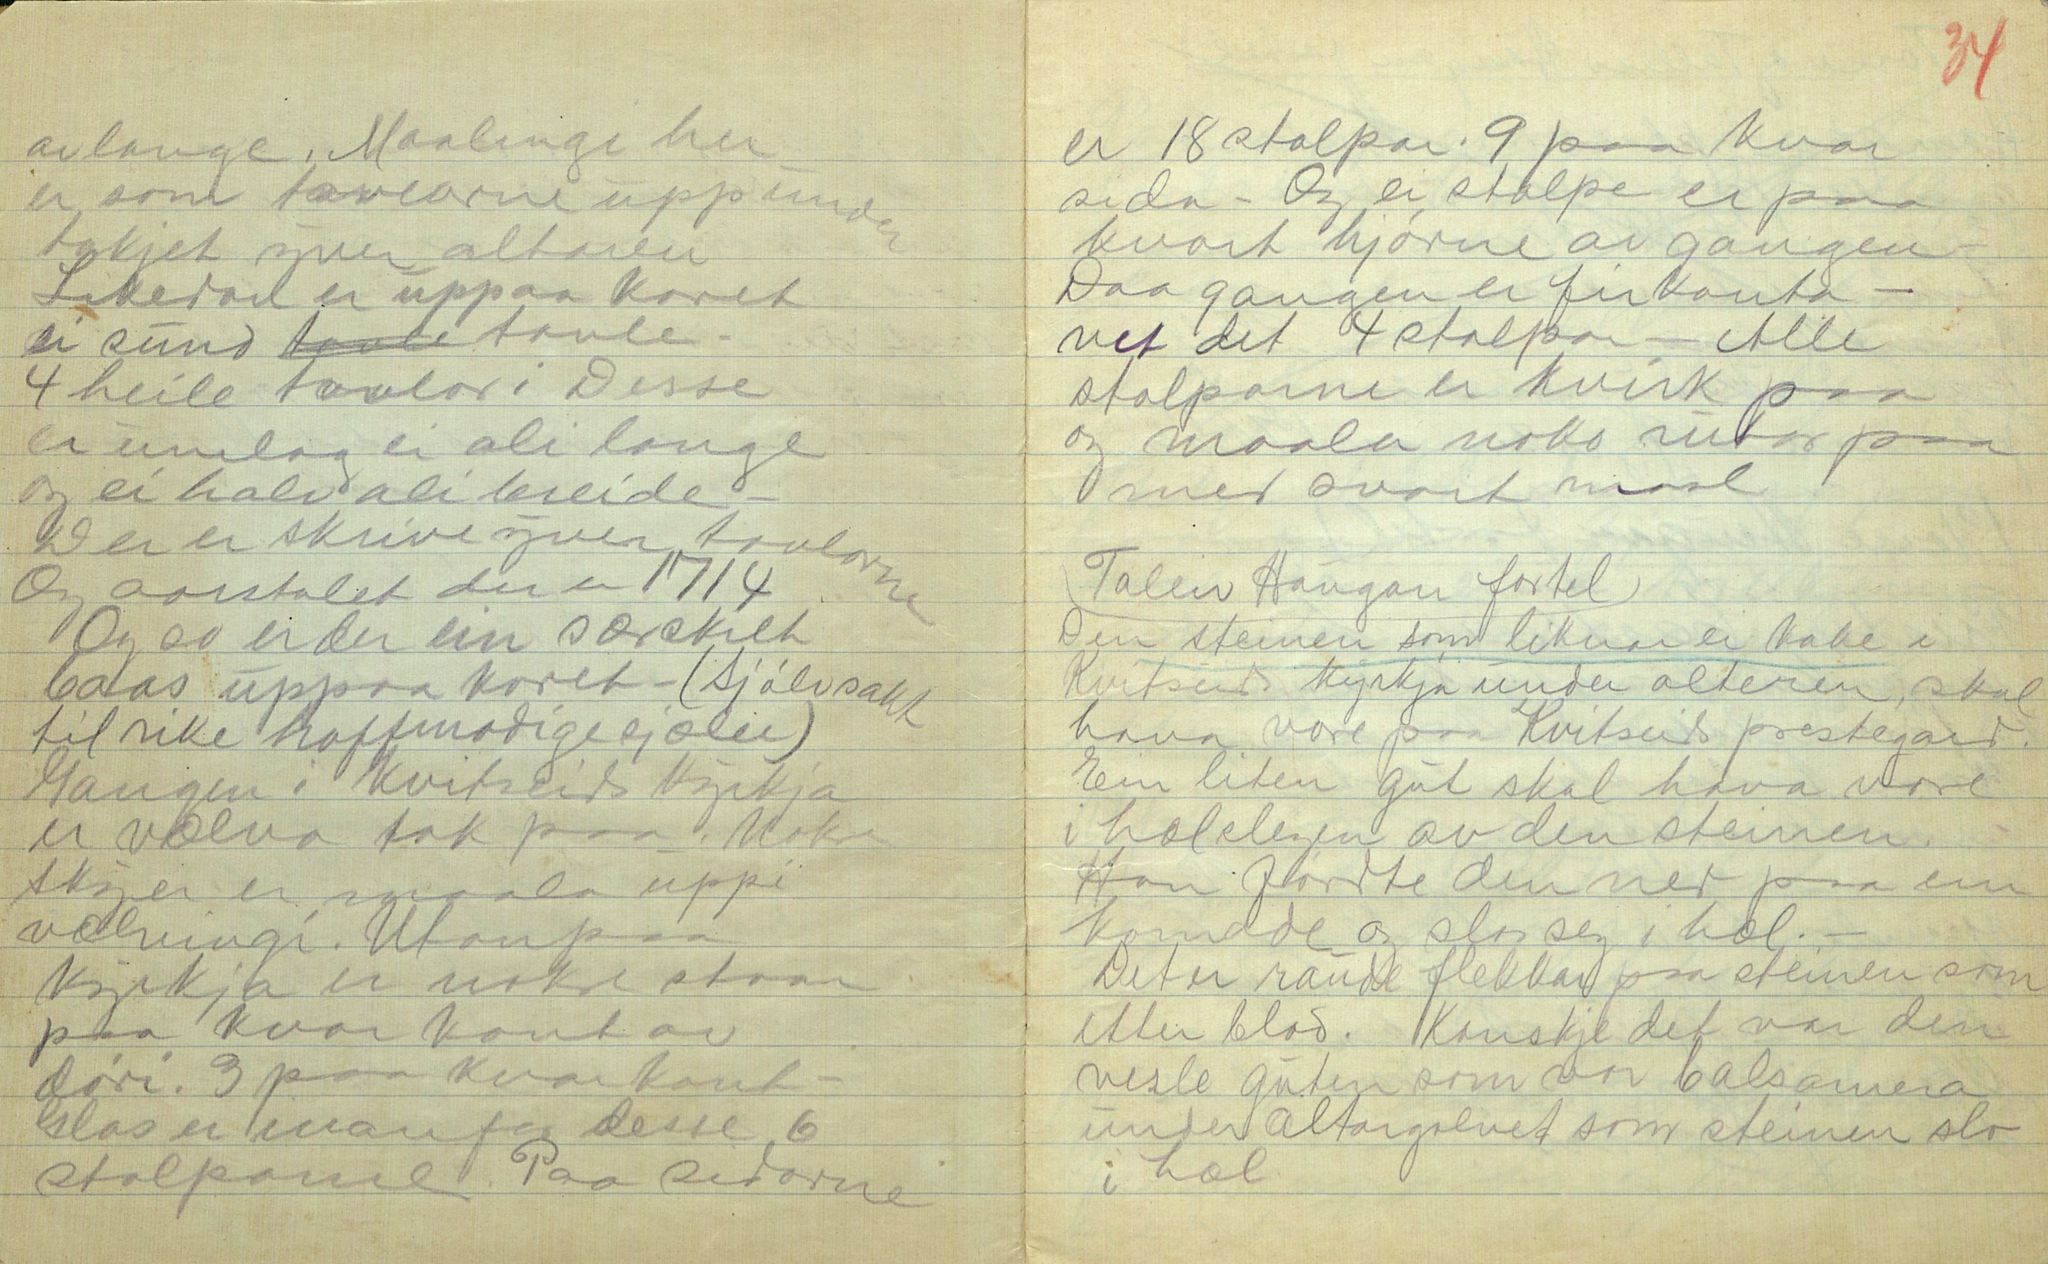 avlange. Maalingi her
er som tavlorne upp under
takjet yver altaren
Likedan er uppaa koret
ei sund tavle tavle -
4 heile tavlor i Desse
er umlag ei ali lange
og ei halv ali breide -
Der er skrive yver tavlorne
Og aarstalet der er 1714
Og so er der ein særskilt
baas uppaa koret - (Sjølvsakt
til rike hoffmodige sjæler)
Gangen i Kvitseids Kyrkja
er vælva tak paa. Noko
skyer er maala uppi
vælvingi. Utanpaa
Kyrkja er nokre staar
paa kvar kant av
döri. 3 paa kvar kant -
Glas er inanfor desse 6
stolparne. Paa sidorne
34
er 18 stolpar. 9 paa kvar
sida - Og ei stolpe er paa
kvart hjörne av gangen -
Daa gangen er firkanta -
vet det 4 stolpar - Alle
stolparne er kvirk paa
og maala noko rutor paa
med svart maal
(Taleiv Haugan fortel)
Den steinen som liknar ei kake i
Kvitseids kyrkja under alteren, skal
hava vore paa Kvitseids prestegard.
Ein liten gut skal hava vore
i hælslegen av den steinen.
Han förde den ned paa ein
komode og slo seg i hæl. -
Det er raude flekkar paa steinen som
etter blod. Kanskje det var den
vesle guten som var balsamera
under altargolvet som steinen slo
i hæl